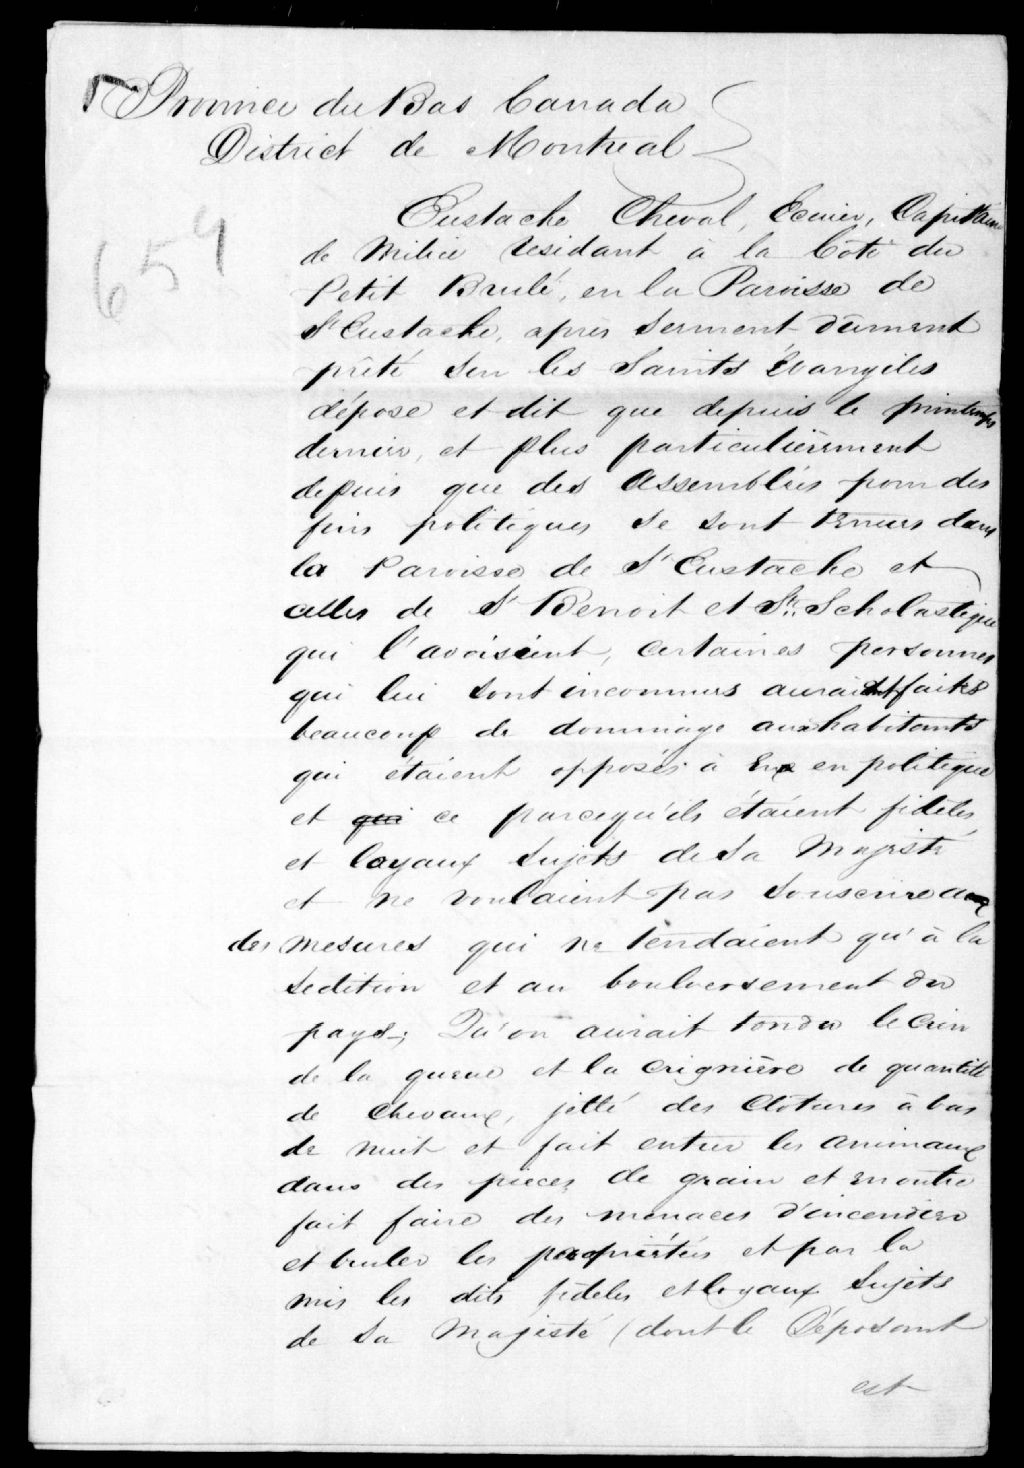 Province du Bas Canada
District de Montreal
659
Eustache Cheval, Ecuier, Capitaine
de Milice residant à la Côte du
Petit Brulé, en la Paroisse de
St Eustache, après serment dûment
prêté sur les Saints Evangiles
dépose et dit que depuis le printemps
dernier, et plus particulièrement
depuis que des Assemblées pour des
fins politiques se sont tenues dans
la Paroisse de St Eustache et
celles de St Benoit et Ste Scholastique
qui l'avoisient, certaines personnes
qui lui sont inconnues auraient faites
beaucoup de dommage aux habitants
qui étaient opposés à Eux en politique
et qui ce parcequ'ils étaient fidèles
et loyaux sujets de Sa Majesté
et ne voulaient pas souscrire a
des mesures qui ne tendaient qu'à la
sedition et au boulversement du
pays; Qu'on aurait tondu le Crin
de la queue et la crignière de quantité
de Chevaux, jetté des Clôtures à bas
de nuit et fait entrer les animaux
dans des pieces de grain et en outre
fait faire des menaces d'incendier
et bruler les propriétés et par la
mis les dits fidèles et loyaux Sujets
de Sa Majesté (dont le Déposant
est